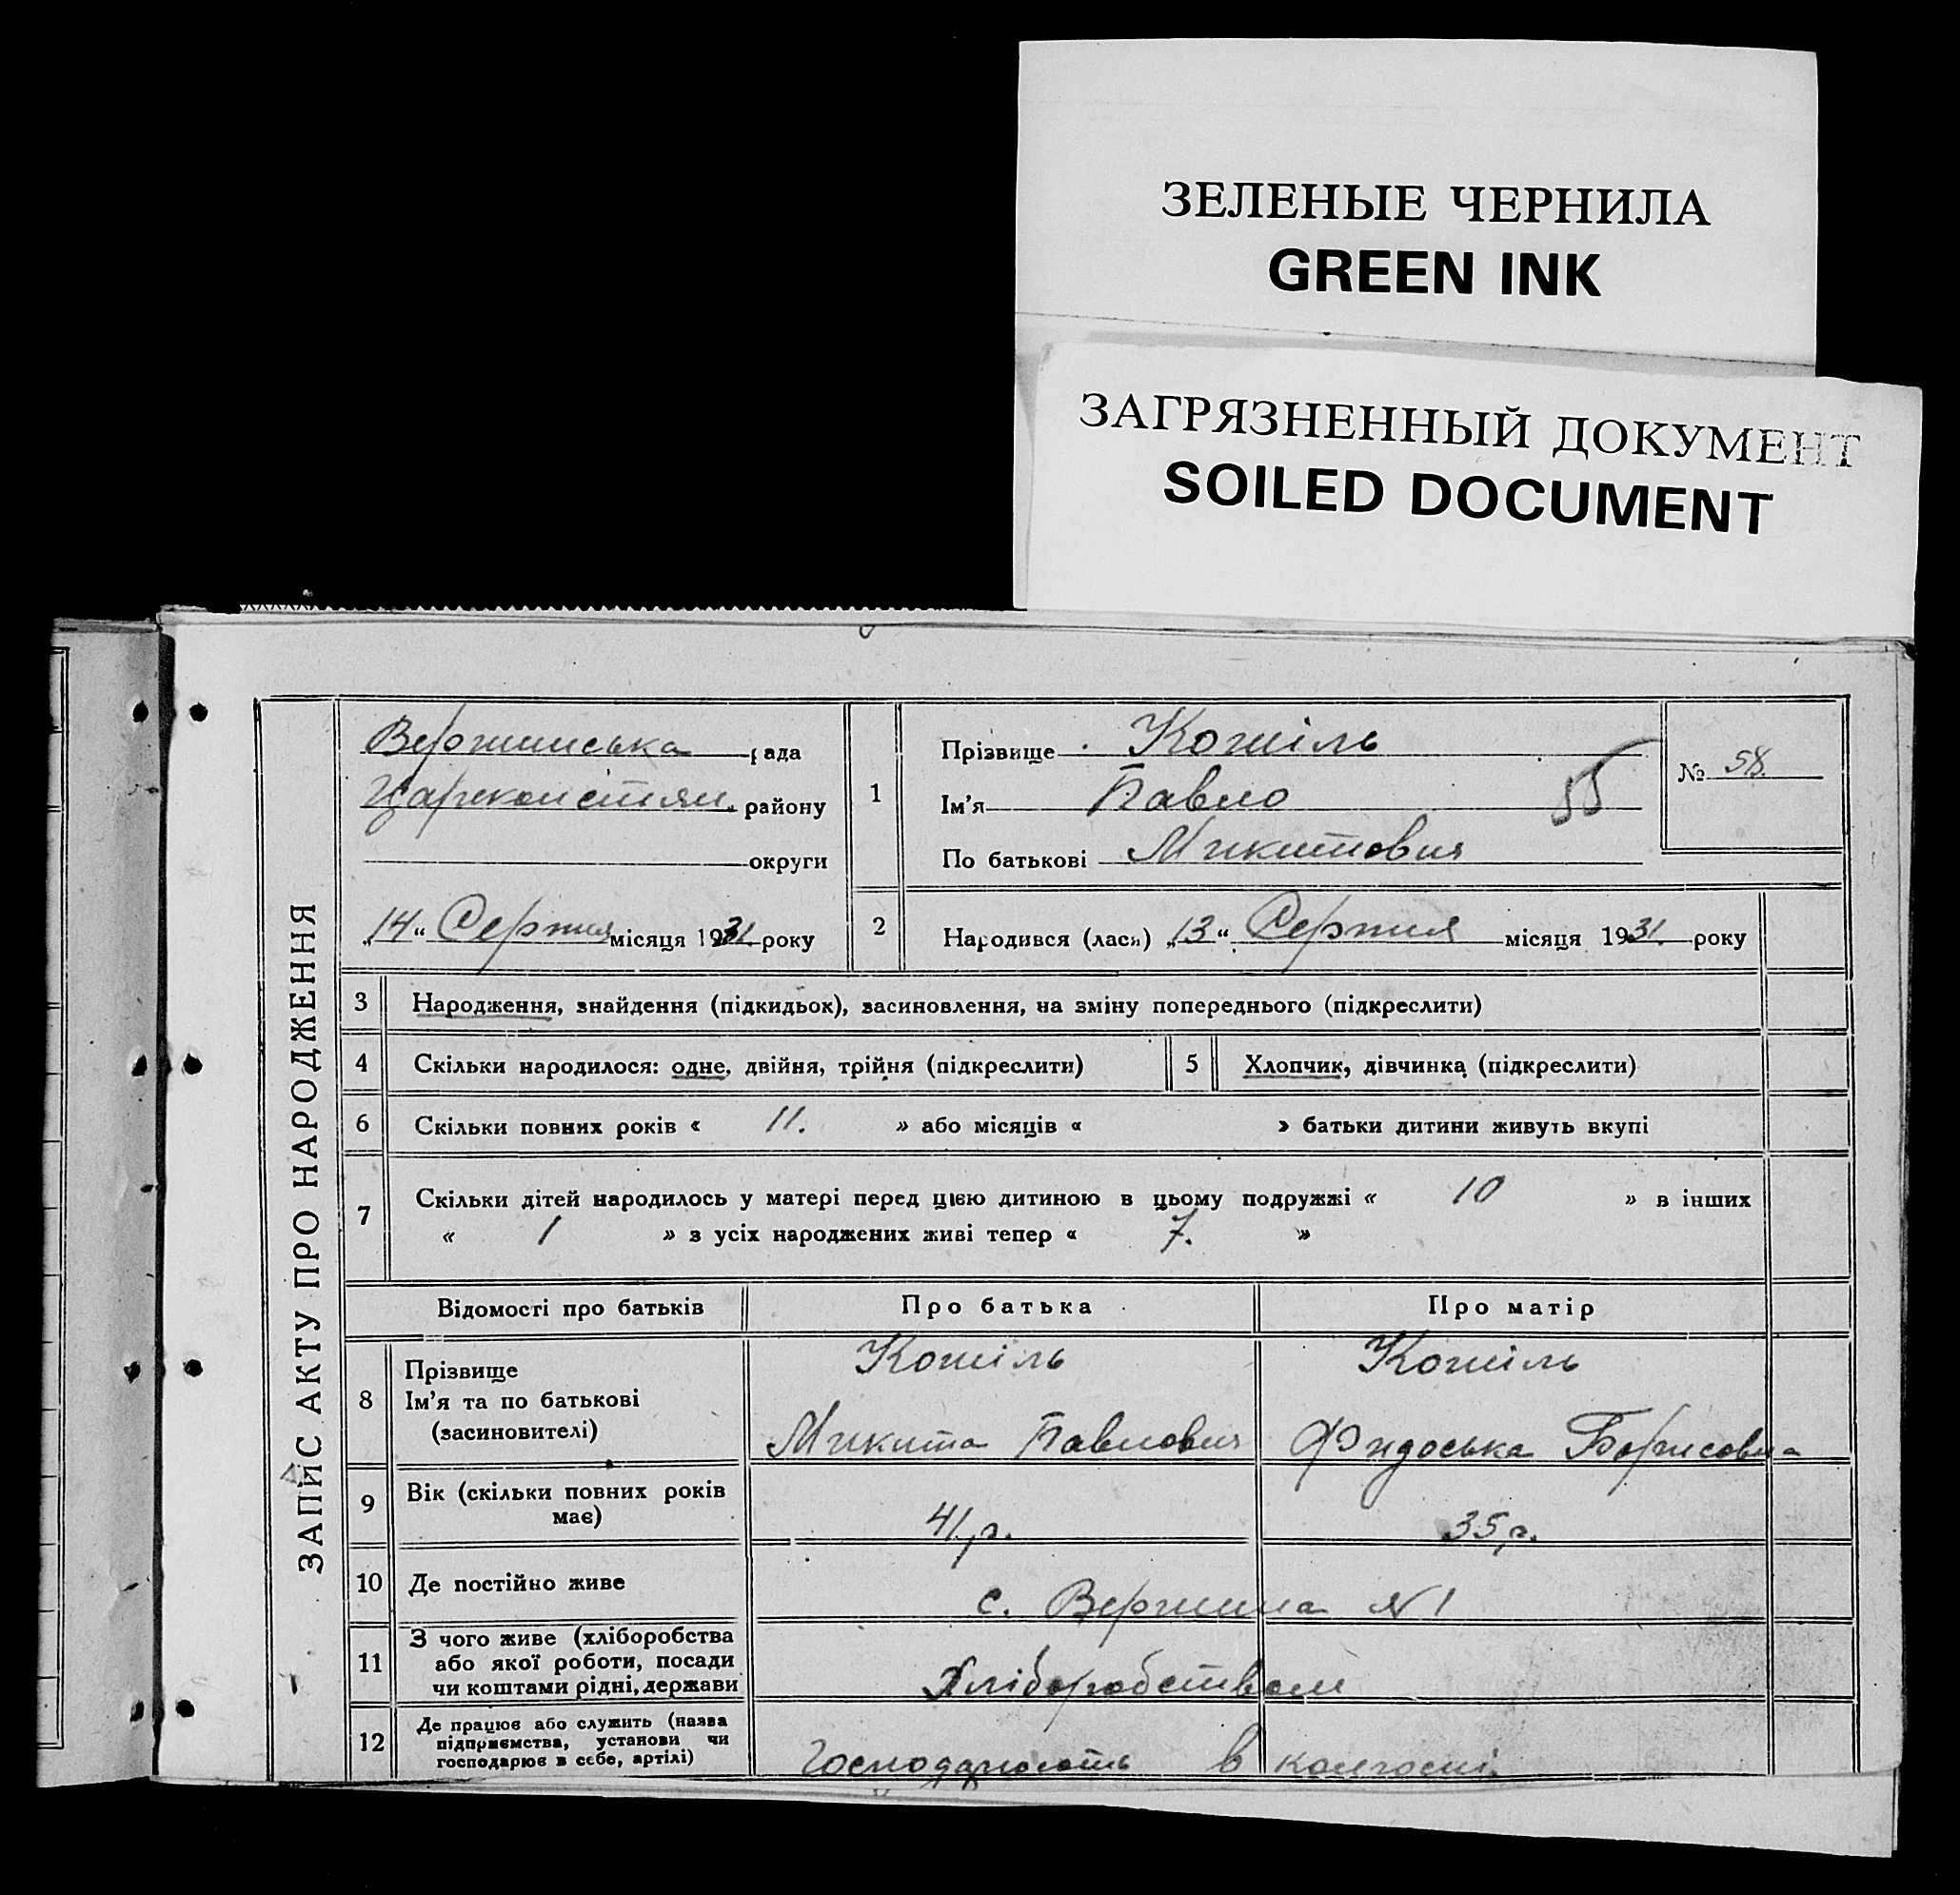 ЗЕЛЕНЫЕ ЧЕРНИЛА
GREEN INK
ЗАГРЯЗНЕННЫЙ ДОКУМЕНТ
SOILED DOCUMENT
ЗАПИС АКТУ ПРО НАРОДЖЕННЯ
Вершинська рада
району
округи
„14“ Серпня місяця 1931. року
1
Прізвище Кошіль
Ім'я Павло
По батькові Микитович
55
№ 58.
2
Народився (лася) „13“ Серпня місяця 1931. року
3 Народження, знайдення (підкидьок), засиновлення, на зміну попереднього (підкреслити)
4 Скільки народилося: одне, двійня, трійня (підкреслити) 5 Хлопчик, дівчинка (підкреслити)
6 Скільки повних років « 11. » або місяців « » батьки дитини живуть вкупі
7 Скільки дітей народилось у матері перед цією дитиною в цьому подружжі « 10 » в інших
« 1 » з усіх народжених живі тепер « 7. »
Відомості про батьків Про батька Про матір
8 Прізвище Кошіль Кошіль
Ім'я та по батькові
(засиновителі) Микита Павлович Фидоська Борисовна
9 Вік (скільки повних років
має) 41 р. 35 р.
10 Де постійно живе с. Вершина №1
11 З чого живе (хліборобства
або якої роботи, посади
чи коштами рідні, держави Хліборобством
12 Де працює або служить (назва
підприємства, установи чи
господарює в себе, артілі) Господарюють в колгоспі.